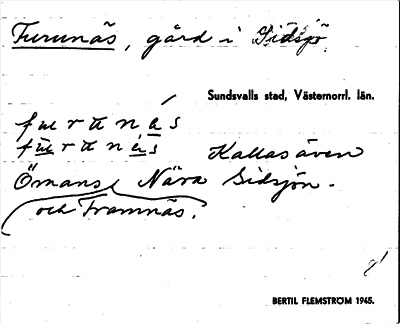 Furunäs, gård i Sidsjö
Sundsvalls stad, Västernorrl. län.
Kallas även
Ömans. Nära Sidsjön.
och Framnäs.
BERTIL FLEMSTRÖM 1945.